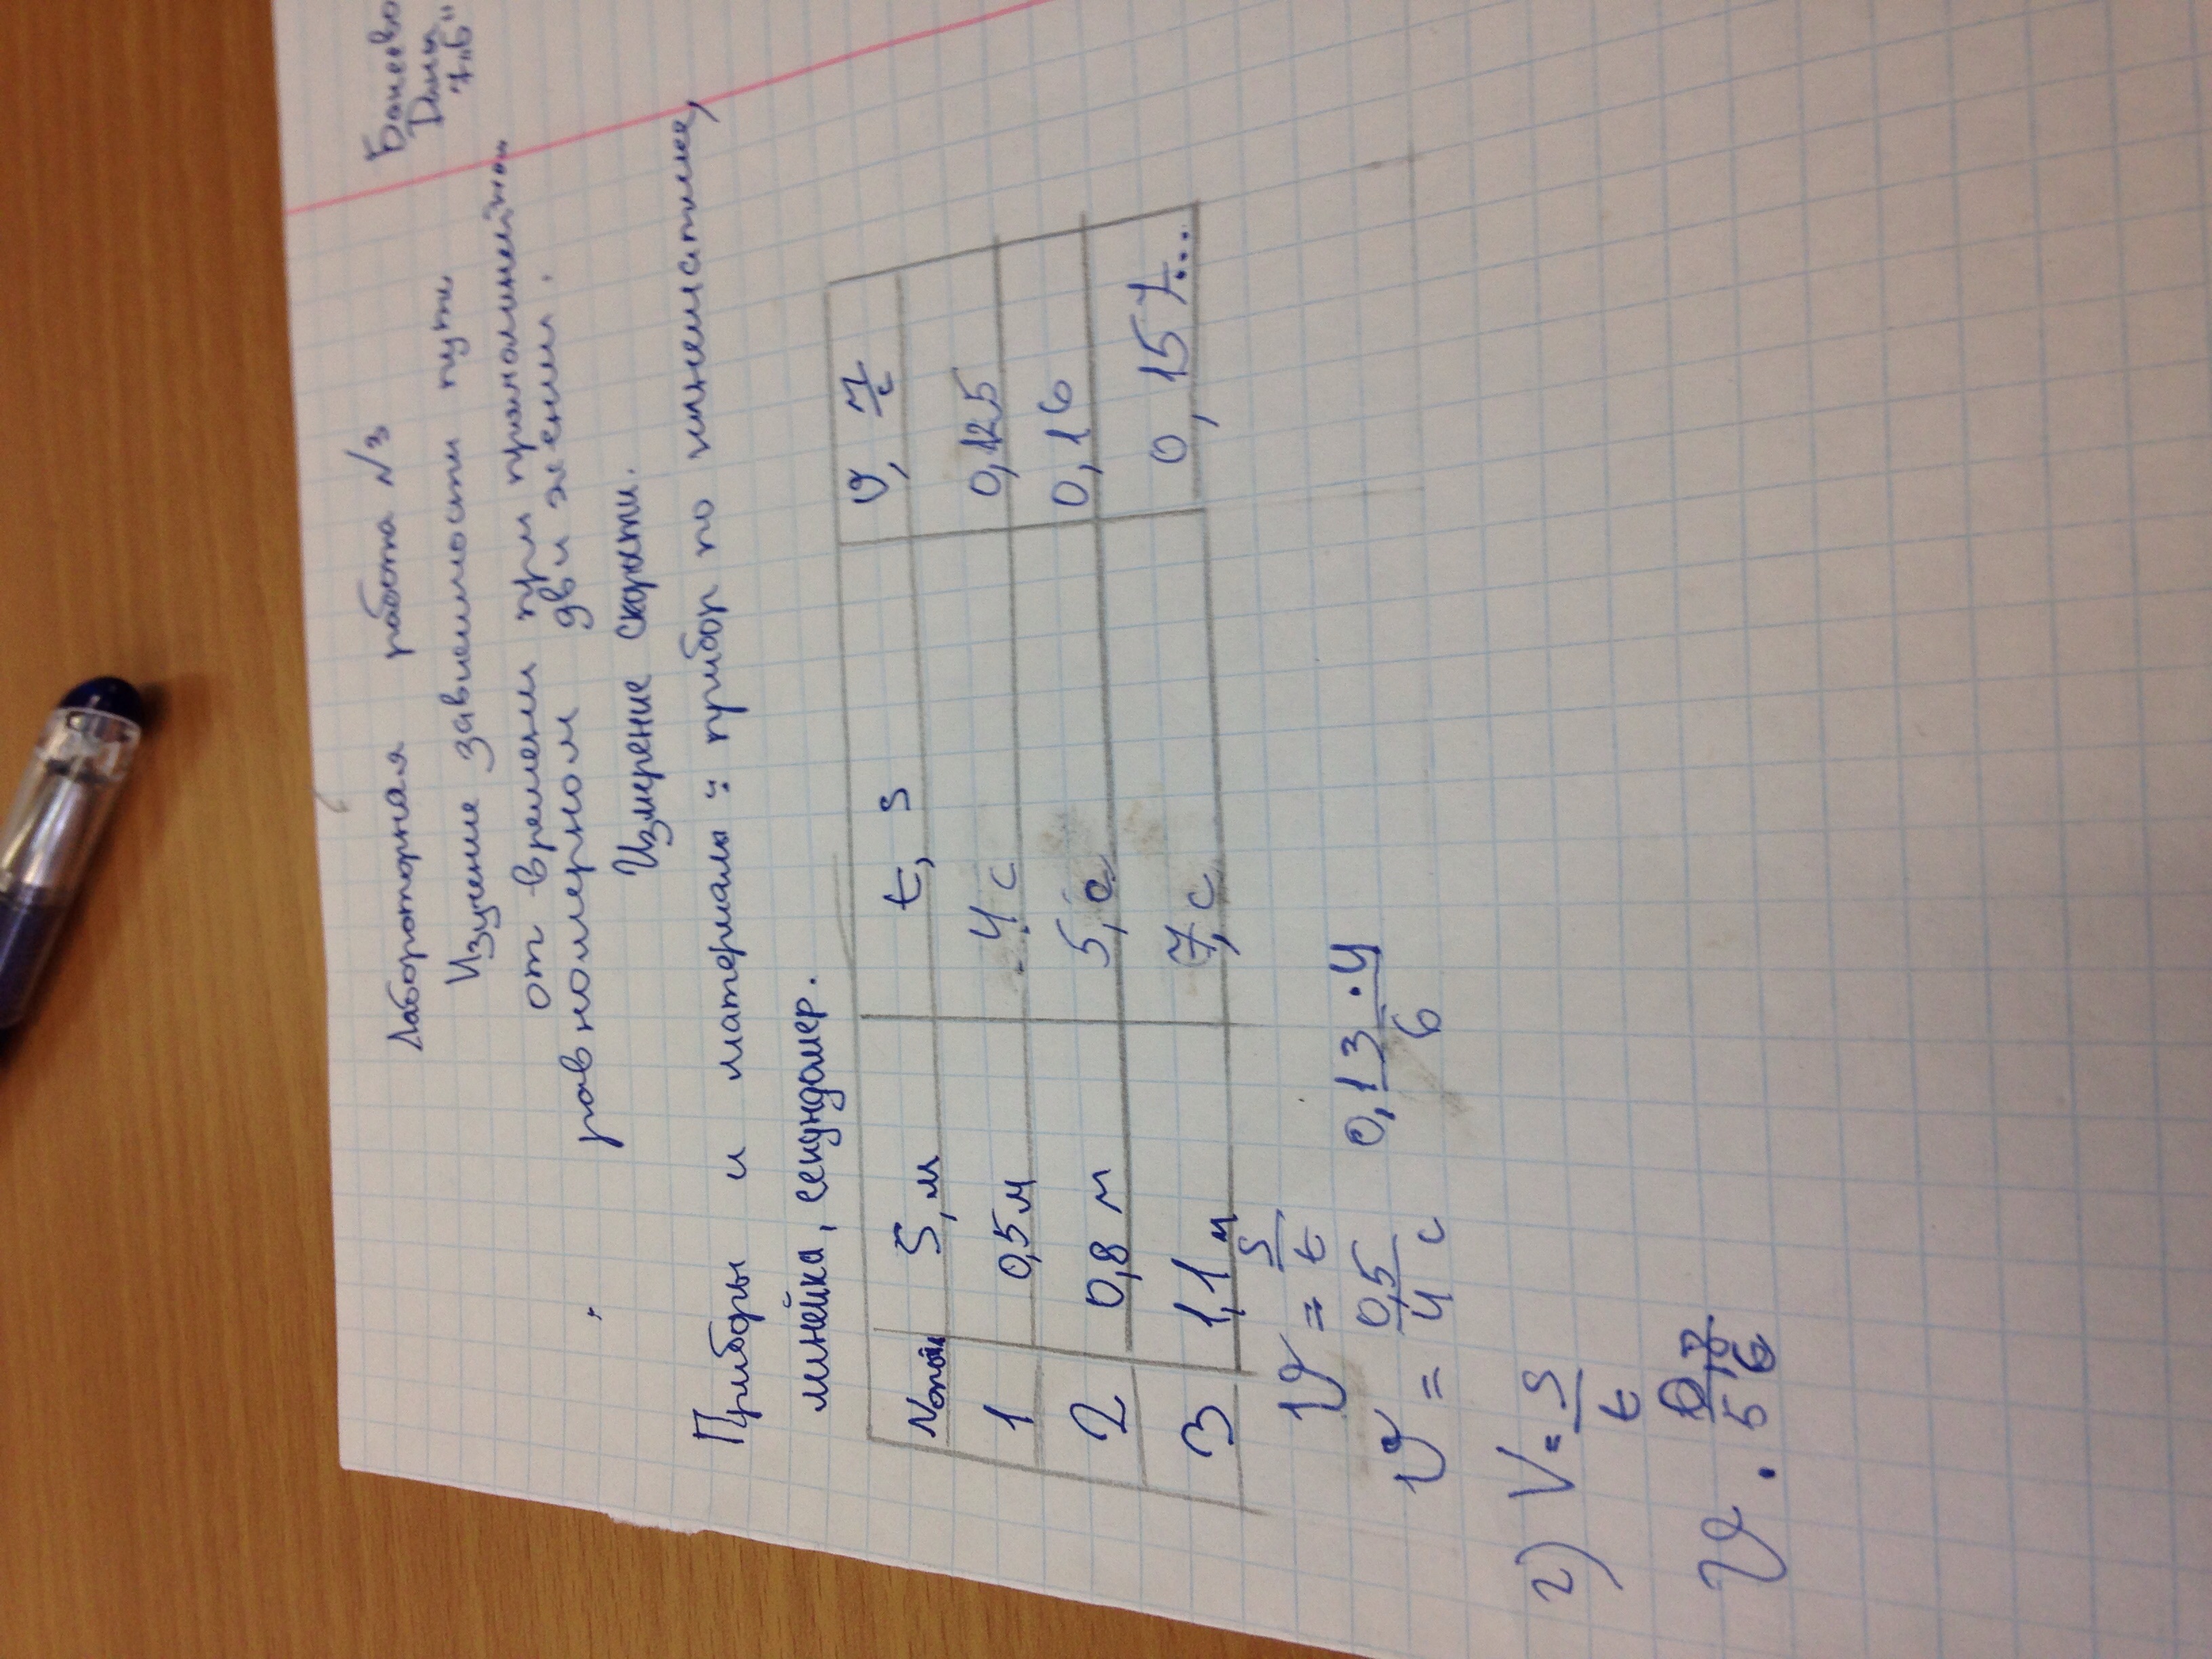 Дани
7 "Б"
Лабороторная работа №3
Изучение зависимости пути
от времени при прямолинейном
равномерном движении.
Измерение скорости.
Приборы и материалы: прибор по кинематике,
линейка, секундомер.
№опыта S, м t, s υ, м/с
1 0,5м 4с 0,125
2 0,8 м 5,с 0,16
3 1,1 м 7,с 0,157...
υ = S/t
υ = 0,5/4 с 0,13·4/6
2) V = S/t
υ.